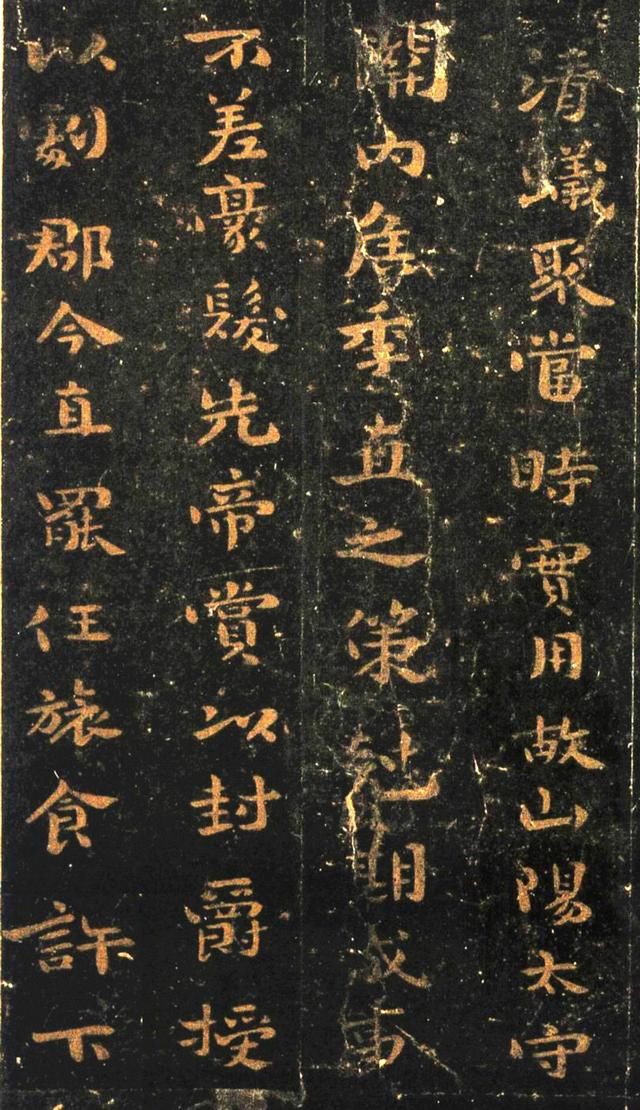 清蟻聚當時實用故山陽太守
關內侯季直之策尅期成事
不差豪髮先帝賞以封爵授
以劇郡今直罷任旅食許下